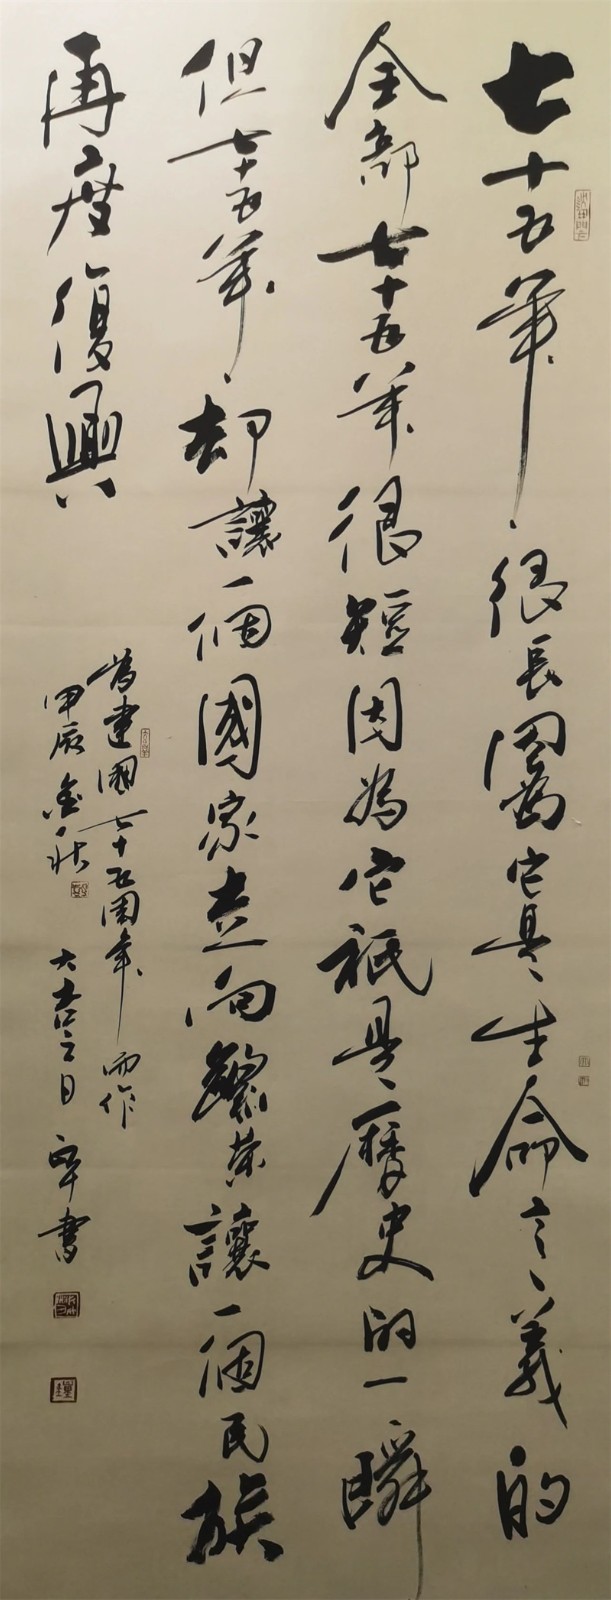 七十五年很長因為它是生命意義的
全部七十五年很短因為它祇是歷史的一瞬
但七十五年却讓一個國家走向繁榮讓一個民族
再度復興
為建國七十五周年而作
甲辰金秋 日 書